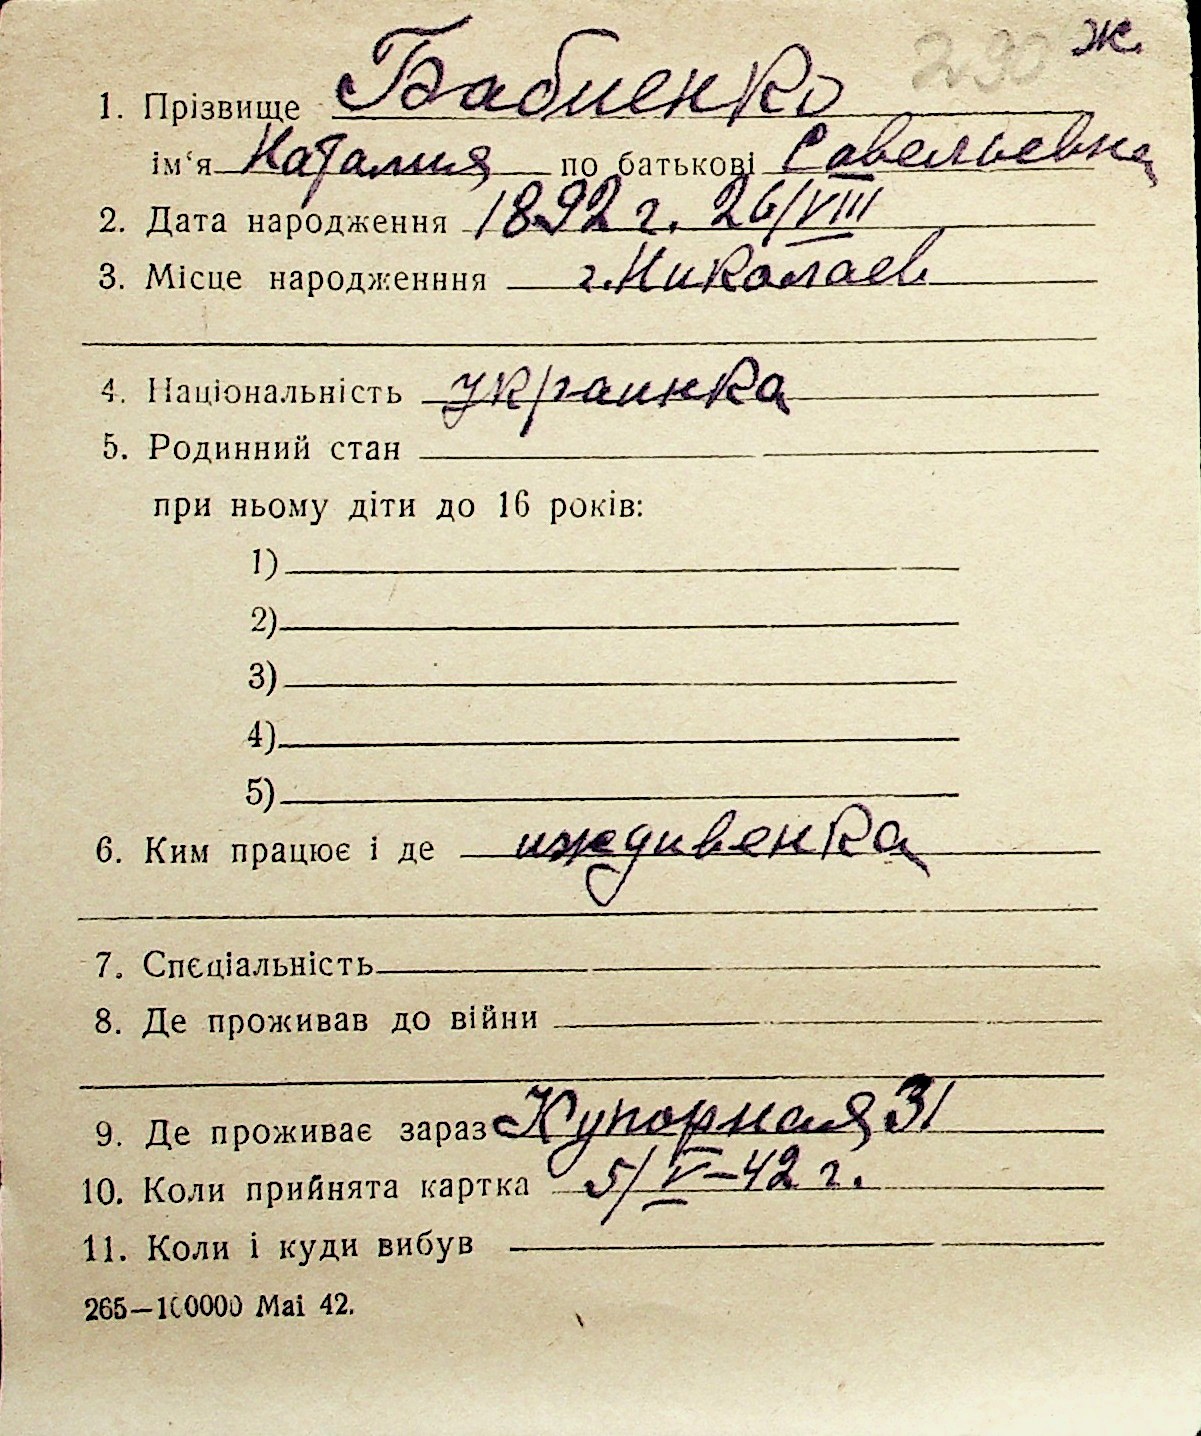 290 ж.
1. Прізвище Бабиенко
ім‘я Наталия по батькові Савельевна
2. Дата народження 1892 г. 26/VIII
3. Місце народженння г. Николаев
4. Національність украинка
5. Родинний стан
при ньому діти до 16 років:
1)
2)
3)
4)
5)
6. Ким працює і де иждивенка
7. Спєціальність
8. Де проживав до війни
9. Де проживає зараз Купорная 31
10. Коли прийнята картка 5/V-42 г.
11. Коли і куди вибув
265—100000 Маі 42.